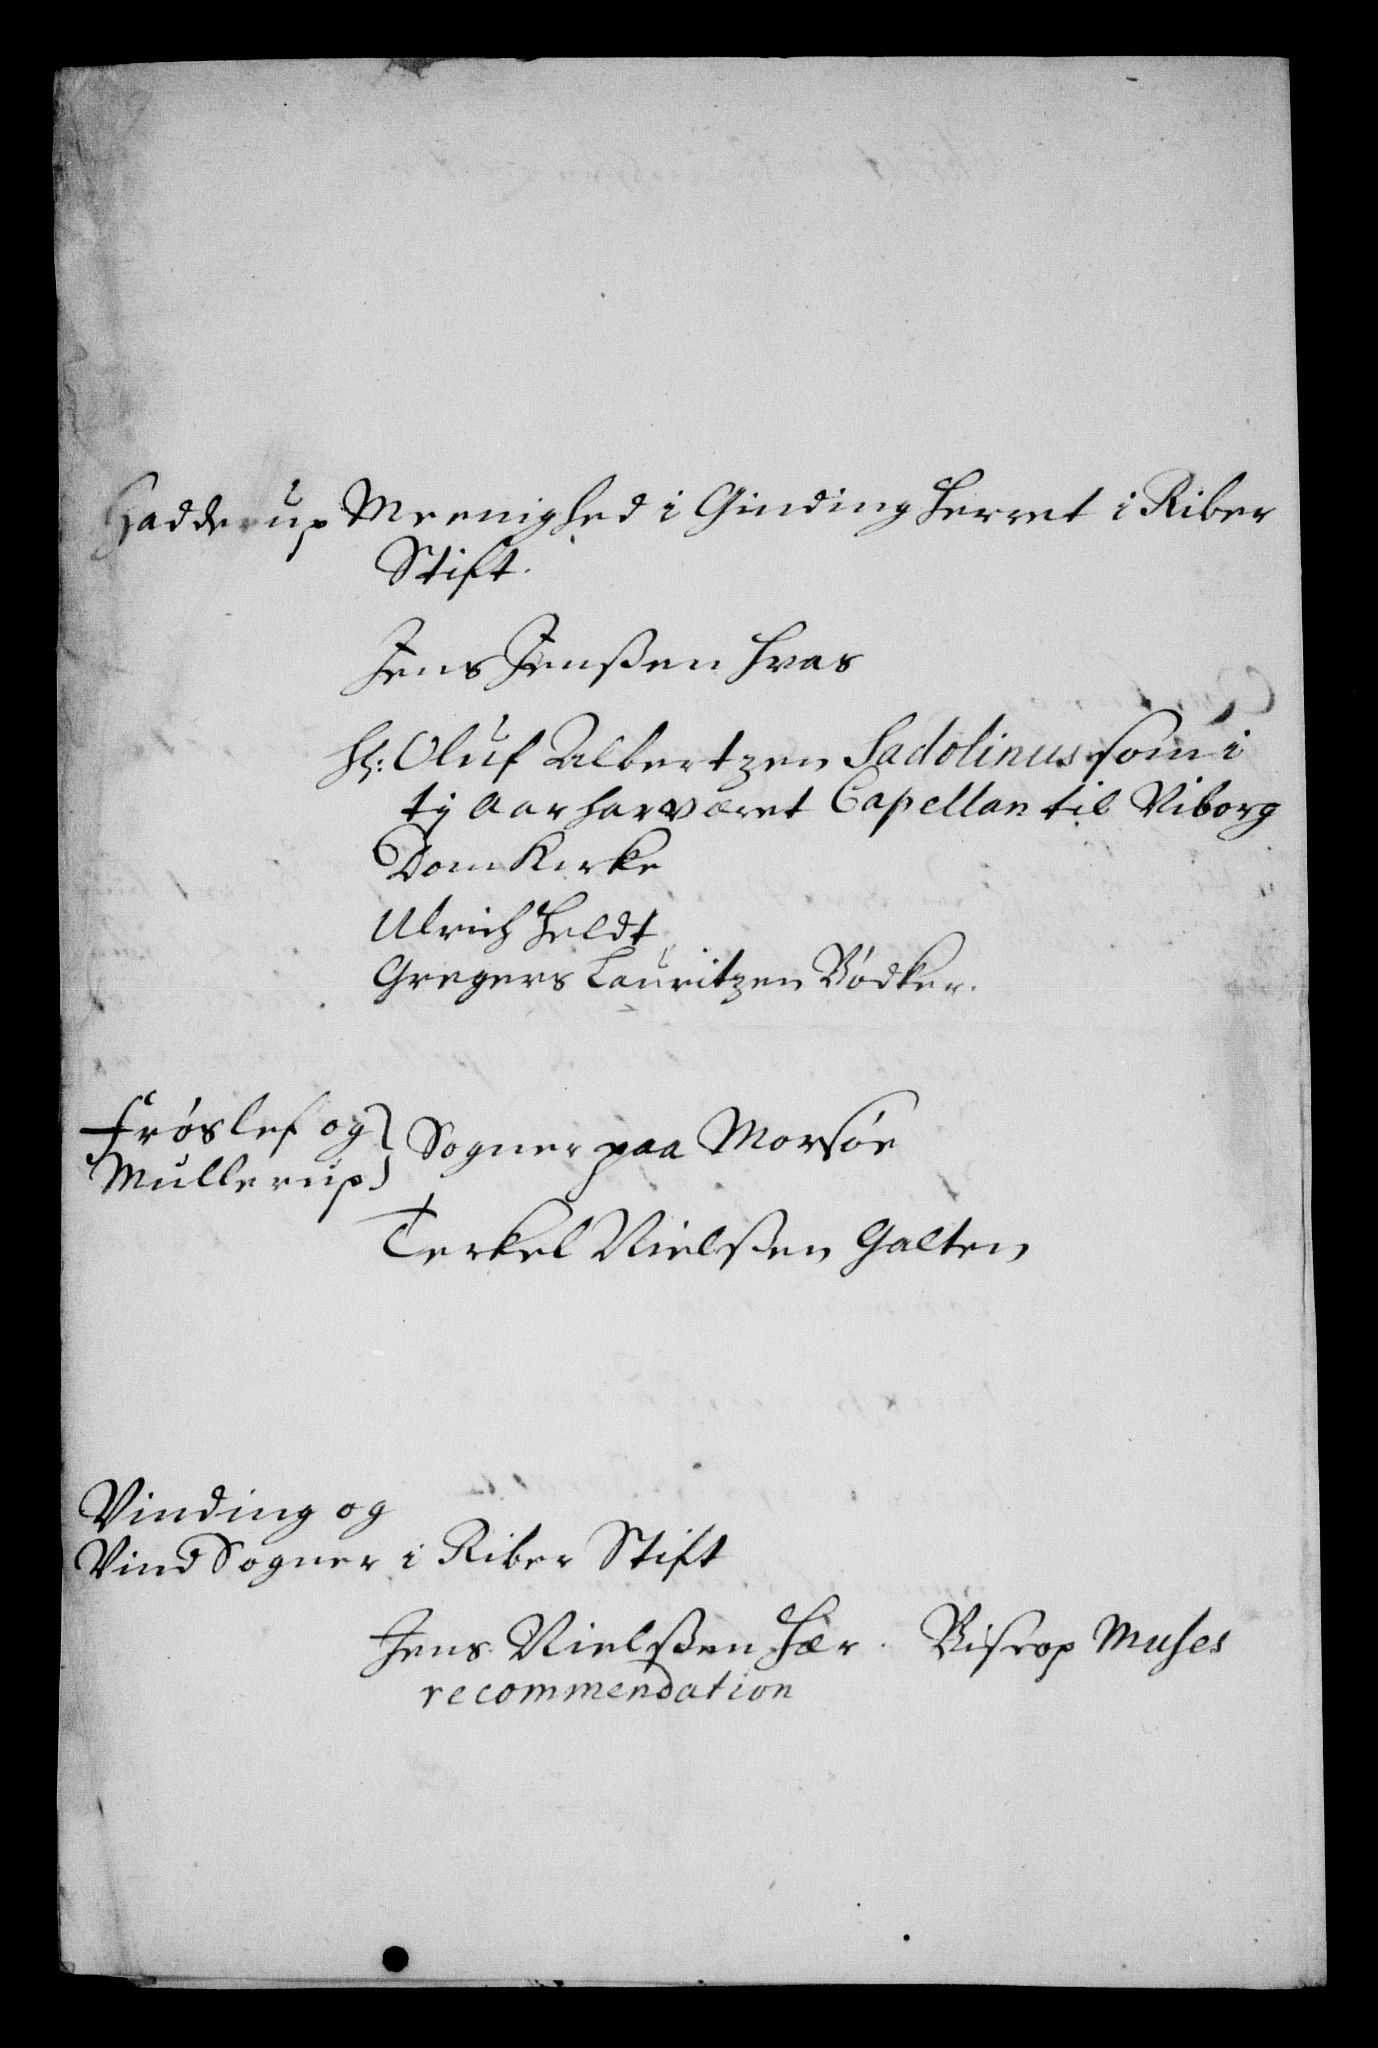 Hadderup Meenighed i Ginding Herret i Riber
Stift.
Jens Jenßen Hvas
Hl: Oluf Albertzen Sadolinus som i
tj Aar har været Capellan til Viborg
Dom Kirke
Ulrich Heldt
Gregers Lauritzen Bödker.
Frøslef og
Mullerup } Sogner paa Morsøe
Terkel Nielßen Galten
Vinding og
Vind Sogner i Riber Stift
Jens Nielßen Hær. Biscop Muhes
recommendation